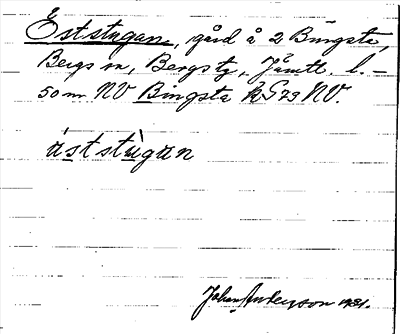 Eststugan, gård å 2 Bingsta,
Bergs sn, Bergs tg, Jämtl. l. –
50 m NV Bingsta k G73 NV.
äststùgan
Johan Anderson 1931.